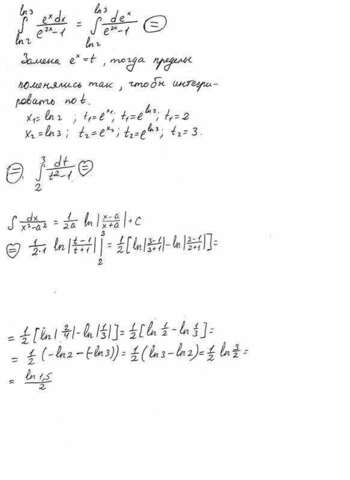 ∫_{ln2}^{ln3} e^x dx / (e^{2x} - 1) = ∫_{ln2}^{ln3} de^x / (e^{2x} - 1) (=)
Замена e^x = t, тогда пределы
поменялись так, чтобы интегри-
ровать по t.
x₁ = ln2 ; t₁ = e^{x₁}; t₁ = e^{ln2}; t₁ = 2
x₂ = ln3; t₂ = e^{x₂}; t₂ = e^{ln3}; t₂ = 3.
(=) ∫_2^3 dt / (t² - 1) (=)
∫ dx / (x² - a²) = 1/(2a) ln|(x-a)/(x+a)| + C
(=) 1/(2·1) ln|(t-1)/(t+1)| |_2^3 = 1/2 [ln|(3-1)/(3+1)| - ln|(2-1)/(2+1)|] =
= 1/2 [ln|2/4| - ln|1/3|] = 1/2 [ln 1/2 - ln 1/3] =
= 1/2 (-ln2 - (-ln3)) = 1/2 (ln3 - ln2) = 1/2 ln 3/2 =
= ln1,5 / 2